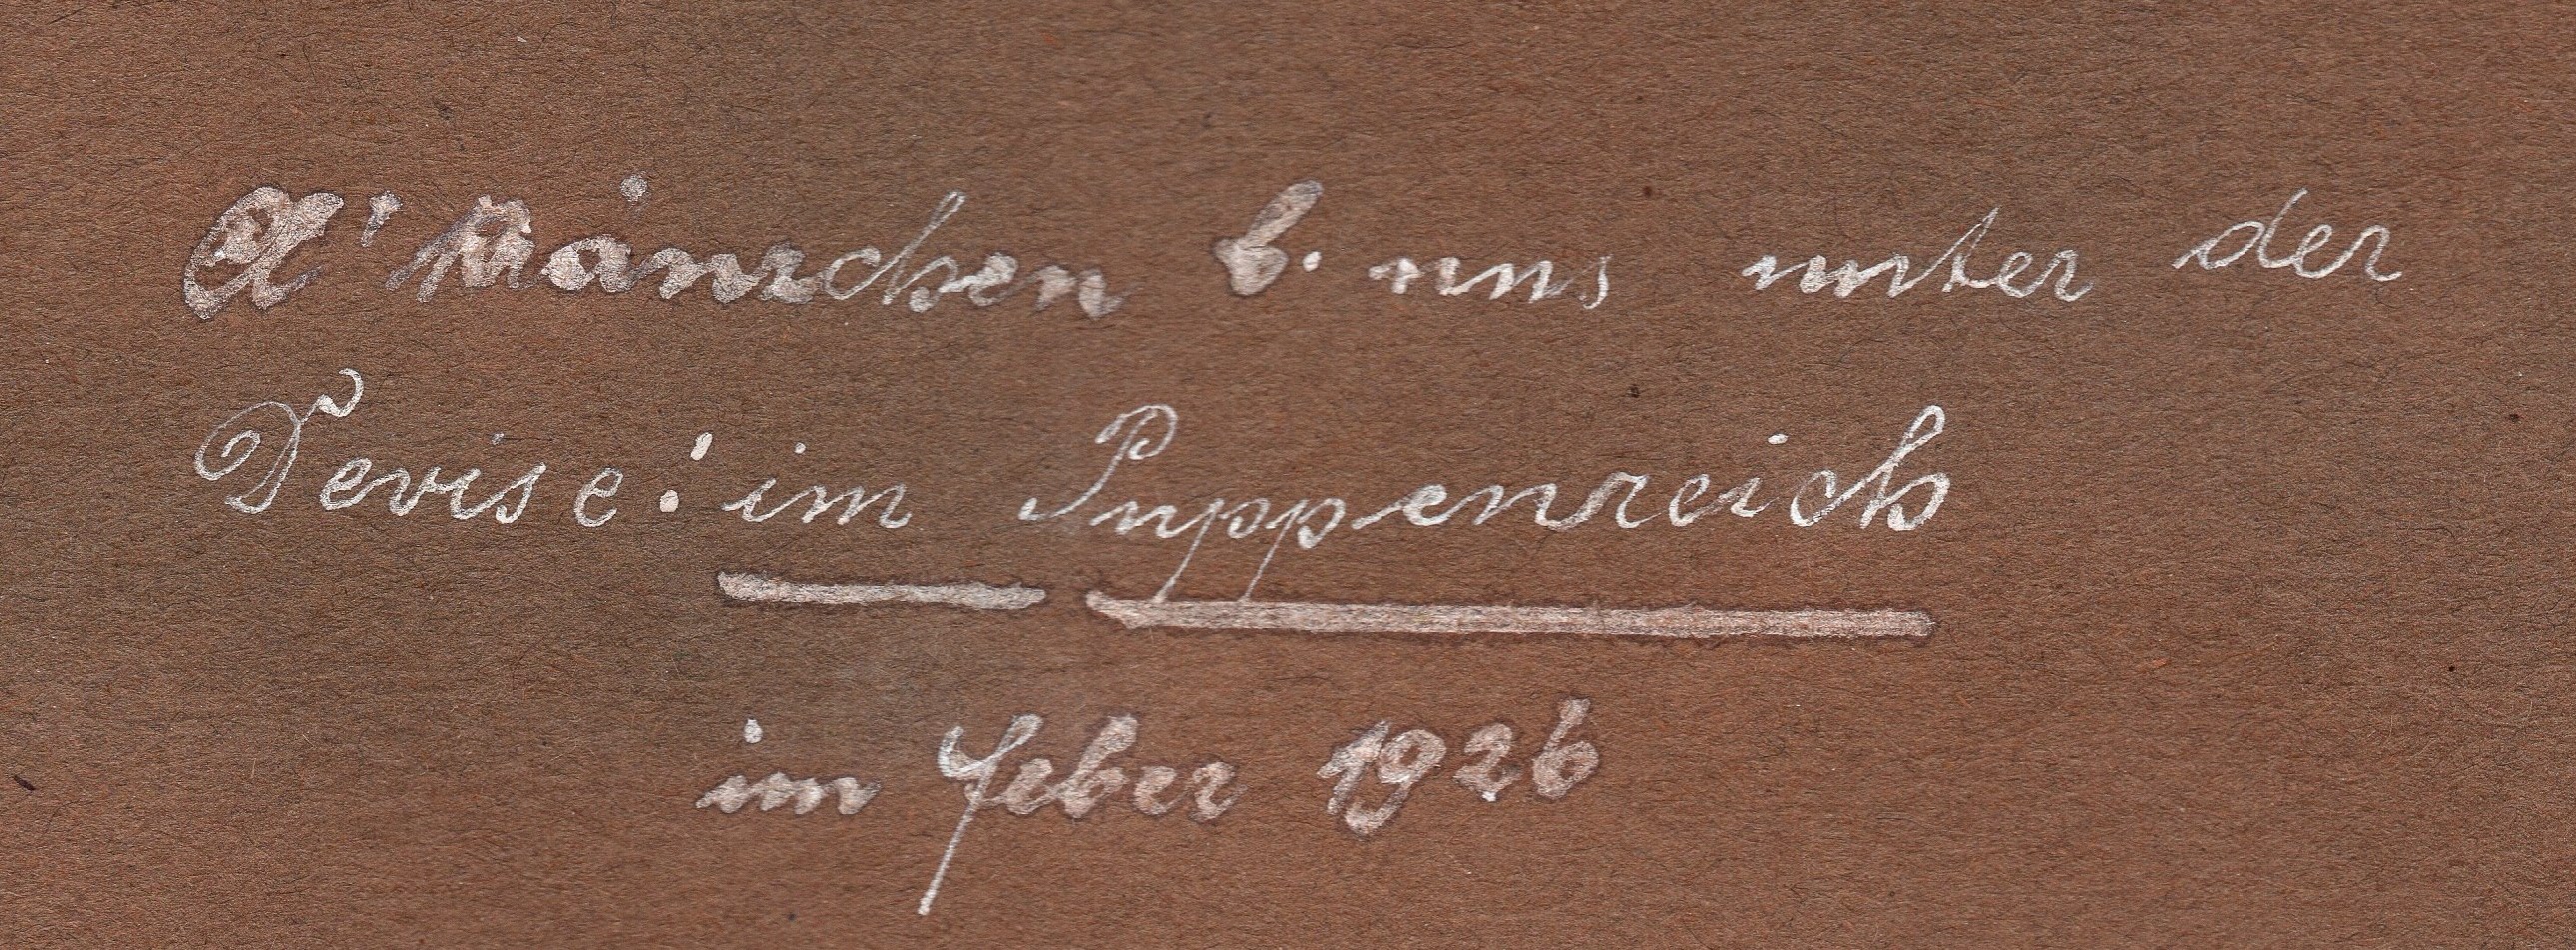 A' Kränzchen b. uns unter der
Devise: im Puppenreich
im Feber 1926